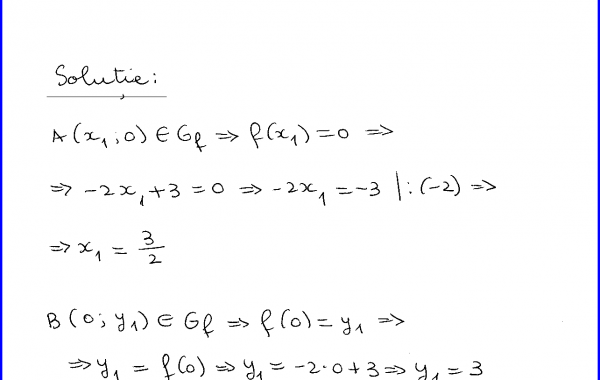 Soluție:
A(x₁;0) ∈ Gf ⇒ f(x₁) = 0 ⇒
⇒ -2x₁+3 = 0 ⇒ -2x₁ = -3 | : (-2) ⇒
⇒ x₁ = 3/2
B(0; y₁) ∈ Gf ⇒ f(0) = y₁ ⇒
⇒ y₁ = f(0) ⇒ y₁ = -2·0+3 ⇒ y₁ = 3